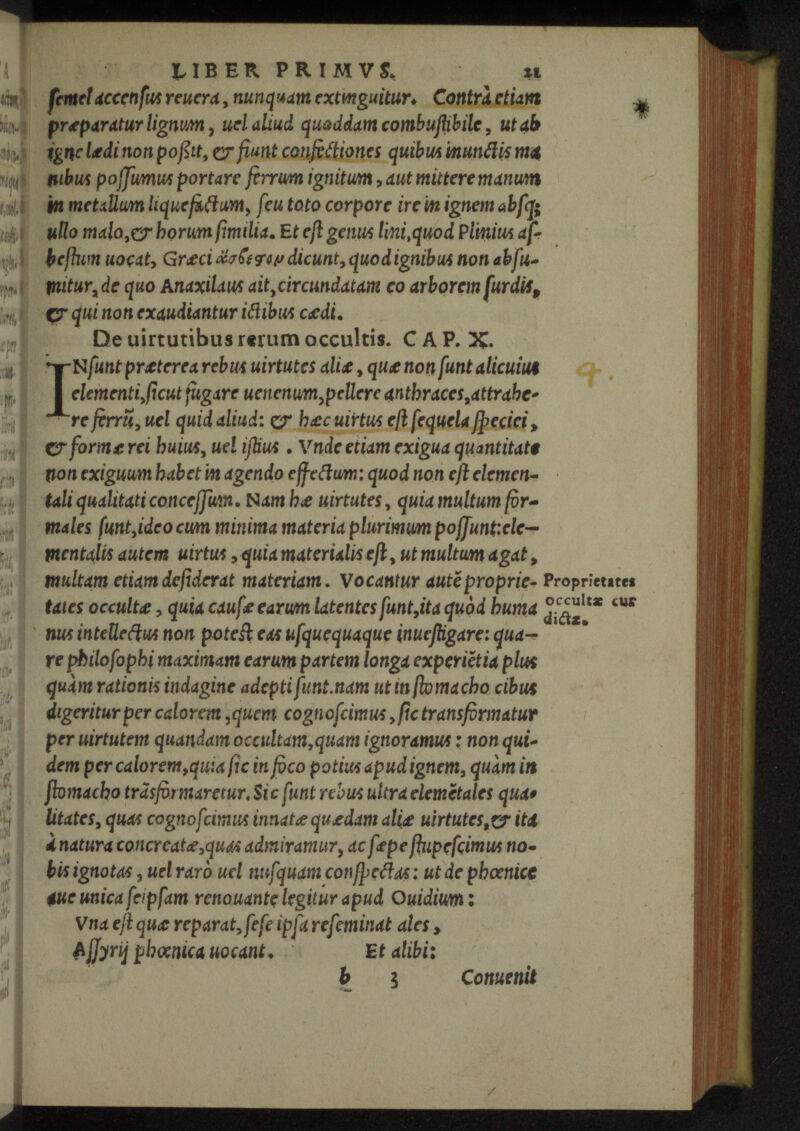 LIBER PRIMVS. 21
semel accensus reuera, nunquam extinguitur. Contrà etiam
præparatur lignum, uel aliud quoddam combustibile, ut ab
igne lædi non poßit, & fiunt confectiones quibus inunctis ma
nibus possumus portare ferrum ignitum, aut mittere manum
in metallum liquefactum, seu toto corpore ire in ignem absq;
ullo malo, & horum similia. Et est genus lini, quod Plinius as-
bestum uocat, Græci ἄσβεστον dicunt, quod ignibus non absu-
mitur, de quo Anaxilaus ait, circundatam eo arborem surdis,
& qui non exaudiantur ictibus cædi.
De uirtutibus rerum occultis. CAP. X.
INsunt præterea rebus uirtutes aliæ, quæ non sunt alicuius
elementi, sicut fugare uenenum, pellere anthraces, attrahe-
re ferrū, uel quid aliud: & hæc uirtus est sequela speciei,
& formæ rei huius, uel istius. Vnde etiam exigua quantitate
non exiguum habet in agendo effectum: quod non est elemen-
tali qualitati concessum. Nam hæ uirtutes, quia multum for-
males sunt, ideo cum minima materia plurimum possunt: ele-
mentalis autem uirtus, quia materialis est, ut multum agat,
multam etiam desiderat materiam. Vocantur autē proprie-
tates occultæ, quia causæ earum latentes sunt, ita quòd huma
nus intellectus non potest eas usquequaque inuestigare: qua-
re philosophi maximam earum partem longa experiētia plus
quàm rationis indagine adepti sunt. nam ut in stomacho cibus
digeritur per calorem, quem cognoscimus, sic transformatur
per uirtutem quandam occultam, quam ignoramus: non qui-
dem per calorem, quia sic in foco potius apud ignem, quàm in
stomacho trāsformaretur. Sic sunt rebus ultra elemētales qua-
litates, quas cognoscimus innatæ quædam aliæ uirtutes, & ita
à natura concreatæ, quas admiramur, ac sæpe stupescimus no-
bis ignotas, uel raro uel nusquam conspectas: ut de phœnice
aue unica seipsam renouante legitur apud Ouidium:
Vna est quæ reparat, sese ipsa reseminat ales,
Assyrij phœnica uocant. Et alibi:
b 3 Conuenit
Proprietates
occultæ cur
dictæ.
*